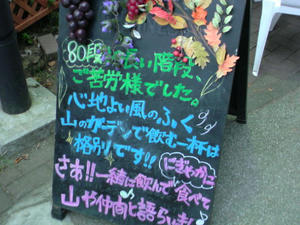 80段
い階は、
ご苦労様でした。
心地よい風のふく
山のガーデンで飲む一杯は
格別です!!
にぎやかに
さあ!!一緒に飲んで食べて
山や仲間と語らいましょ